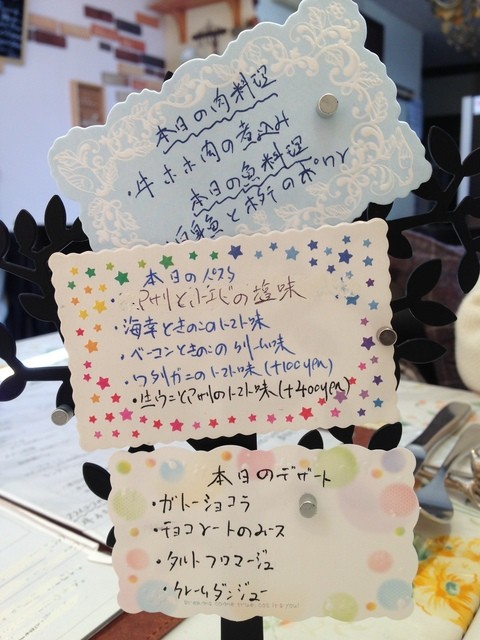 本日の肉料理
・牛ホホ肉の煮込み
本日の魚料理
白身魚とホタテのポワレ
本日のパスタ
・アサリと小エビの塩味
・海幸ときのこのトマト味
・ベーコンときのこのクリーム味
・ワタリガニのトマト味(+100yen)
・生ウニとアサリのトマト味(+400yen)
本日のデザート
・ガトーショコラ
・チョコレートのムース
・タルトフロマージュ
・クレームダンジュー